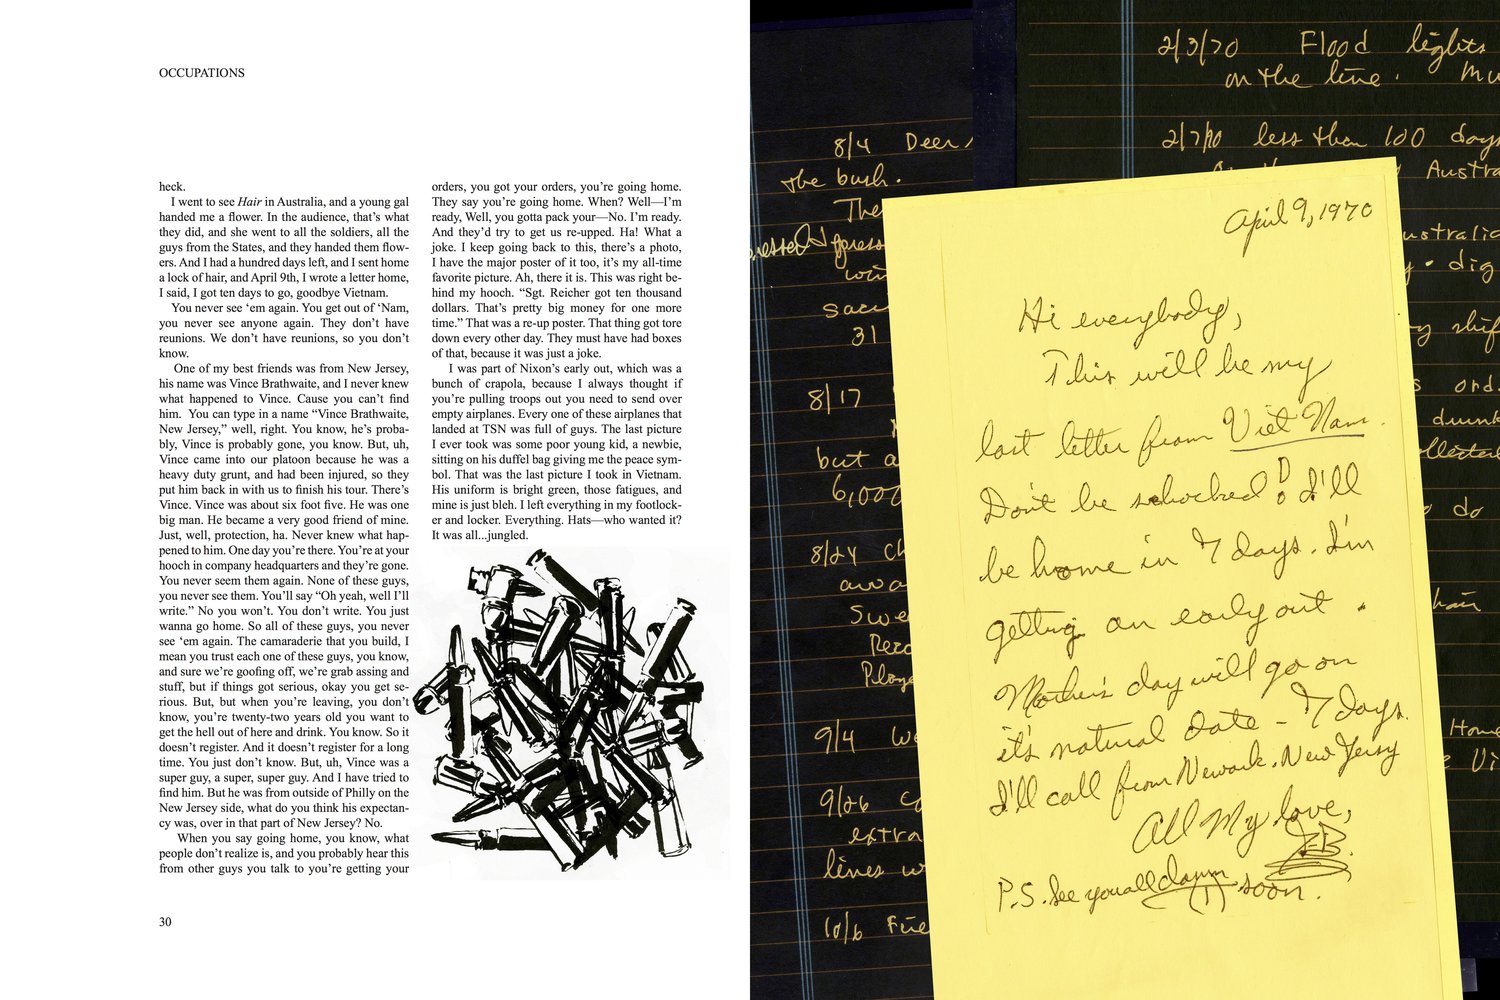 OCCUPATIONS
heck.
I went to see Hair in Australia, and a young gal
handed me a flower. In the audience, that’s what
they did, and she went to all the soldiers, all the
guys from the States, and they handed them flow-
ers. And I had a hundred days left, and I sent home
a lock of hair, and April 9th, I wrote a letter home,
I said, I got ten days to go, goodbye Vietnam.
You never see ‘em again. You get out of ‘Nam,
you never see anyone again. They don’t have
reunions. We don’t have reunions, so you don’t
know.
One of my best friends was from New Jersey,
his name was Vince Brathwaite, and I never knew
what happened to Vince. Cause you can’t find
him. You can type in a name “Vince Brathwaite,
New Jersey,” well, right. You know, he’s proba-
bly, Vince is probably gone, you know. But, uh,
Vince came into our platoon because he was a
heavy duty grunt, and had been injured, so they
put him back in with us to finish his tour. There’s
Vince. Vince was about six foot five. He was one
big man. He became a very good friend of mine.
Just, well, protection, ha. Never knew what hap-
pened to him. One day you’re there. You’re at your
hooch in company headquarters and they’re gone.
You never seem them again. None of these guys,
you never see them. You’ll say “Oh yeah, well I’ll
write.” No you won’t. You don’t write. You just
wanna go home. So all of these guys, you never
see ‘em again. The camaraderie that you build, I
mean you trust each one of these guys, you know,
and sure we’re goofing off, we’re grab assing and
stuff, but if things got serious, okay you get se-
rious. But, but when you’re leaving, you don’t
know, you’re twenty-two years old you want to
get the hell out of here and drink. You know. So it
doesn’t register. And it doesn’t register for a long
time. You just don’t know. But, uh, Vince was a
super guy, a super, super guy. And I have tried to
find him. But he was from outside of Philly on the
New Jersey side, what do you think his expectan-
cy was, over in that part of New Jersey? No.
When you say going home, you know, what
people don’t realize is, and you probably hear this
from other guys you talk to you’re getting your
orders, you got your orders, you’re going home.
They say you’re going home. When? Well—I’m
ready, Well, you gotta pack your—No. I’m ready.
And they’d try to get us re-upped. Ha! What a
joke. I keep going back to this, there’s a photo,
I have the major poster of it too, it’s my all-time
favorite picture. Ah, there it is. This was right be-
hind my hooch. “Sgt. Reicher got ten thousand
dollars. That’s pretty big money for one more
time.” That was a re-up poster. That thing got tore
down every other day. They must have had boxes
of that, because it was just a joke.
I was part of Nixon’s early out, which was a
bunch of crapola, because I always thought if
you’re pulling troops out you need to send over
empty airplanes. Every one of these airplanes that
landed at TSN was full of guys. The last picture
I ever took was some poor young kid, a newbie,
sitting on his duffel bag giving me the peace sym-
bol. That was the last picture I took in Vietnam.
His uniform is bright green, those fatigues, and
mine is just bleh. I left everything in my footlock-
er and locker. Everything. Hats—who wanted it?
It was all...jungled.
30
8/4 Deer
the bush.
The
31
8/17
but a
6,000
8/24 Ch
awa
Swe
Rec
Playe
9/4 We
9/26
extra
lines w
10/6 Fue
2/3/70 Flood lights
on the line. Mu
2/7/70 less than 100 days
Austra
ustralia
dig
shif
ord.
drunk
ollected
do
hair
Home
Vi
April 9, 1970
Hi everybody,
This will be my
last letter from Viet Nam.
Don't be schocked! I'll
be home in 7 days. I'm
getting an early out.
Mother's day will go on
it's natural date - 7 days.
I'll call from Newark, New Jersy
All My love,
P.S. See you all damn (!) soon.